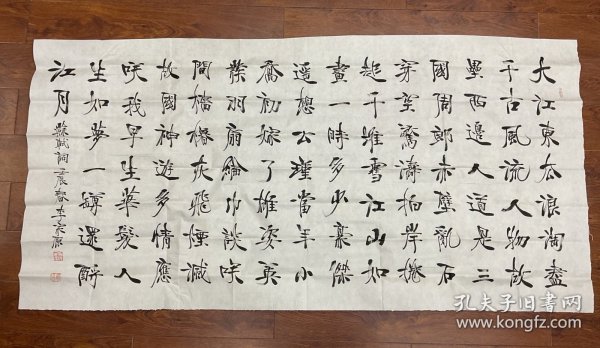 大江東去浪淘盡
千古風流人物故
壘西邊人道是三
國周郎赤壁亂石
穿空驚濤拍岸捲
起千堆雪江山如
畫一時多少豪傑
遥想公瑾當年小
喬初嫁了雄姿英
發羽扇綸巾談咲
間檣櫓灰飛煙滅
故國神遊多情應
咲我早生華髮人
生如夢一罇還酹
江月 蘇軾詞 壬辰春
孔夫子旧书网
www.kongfz.com